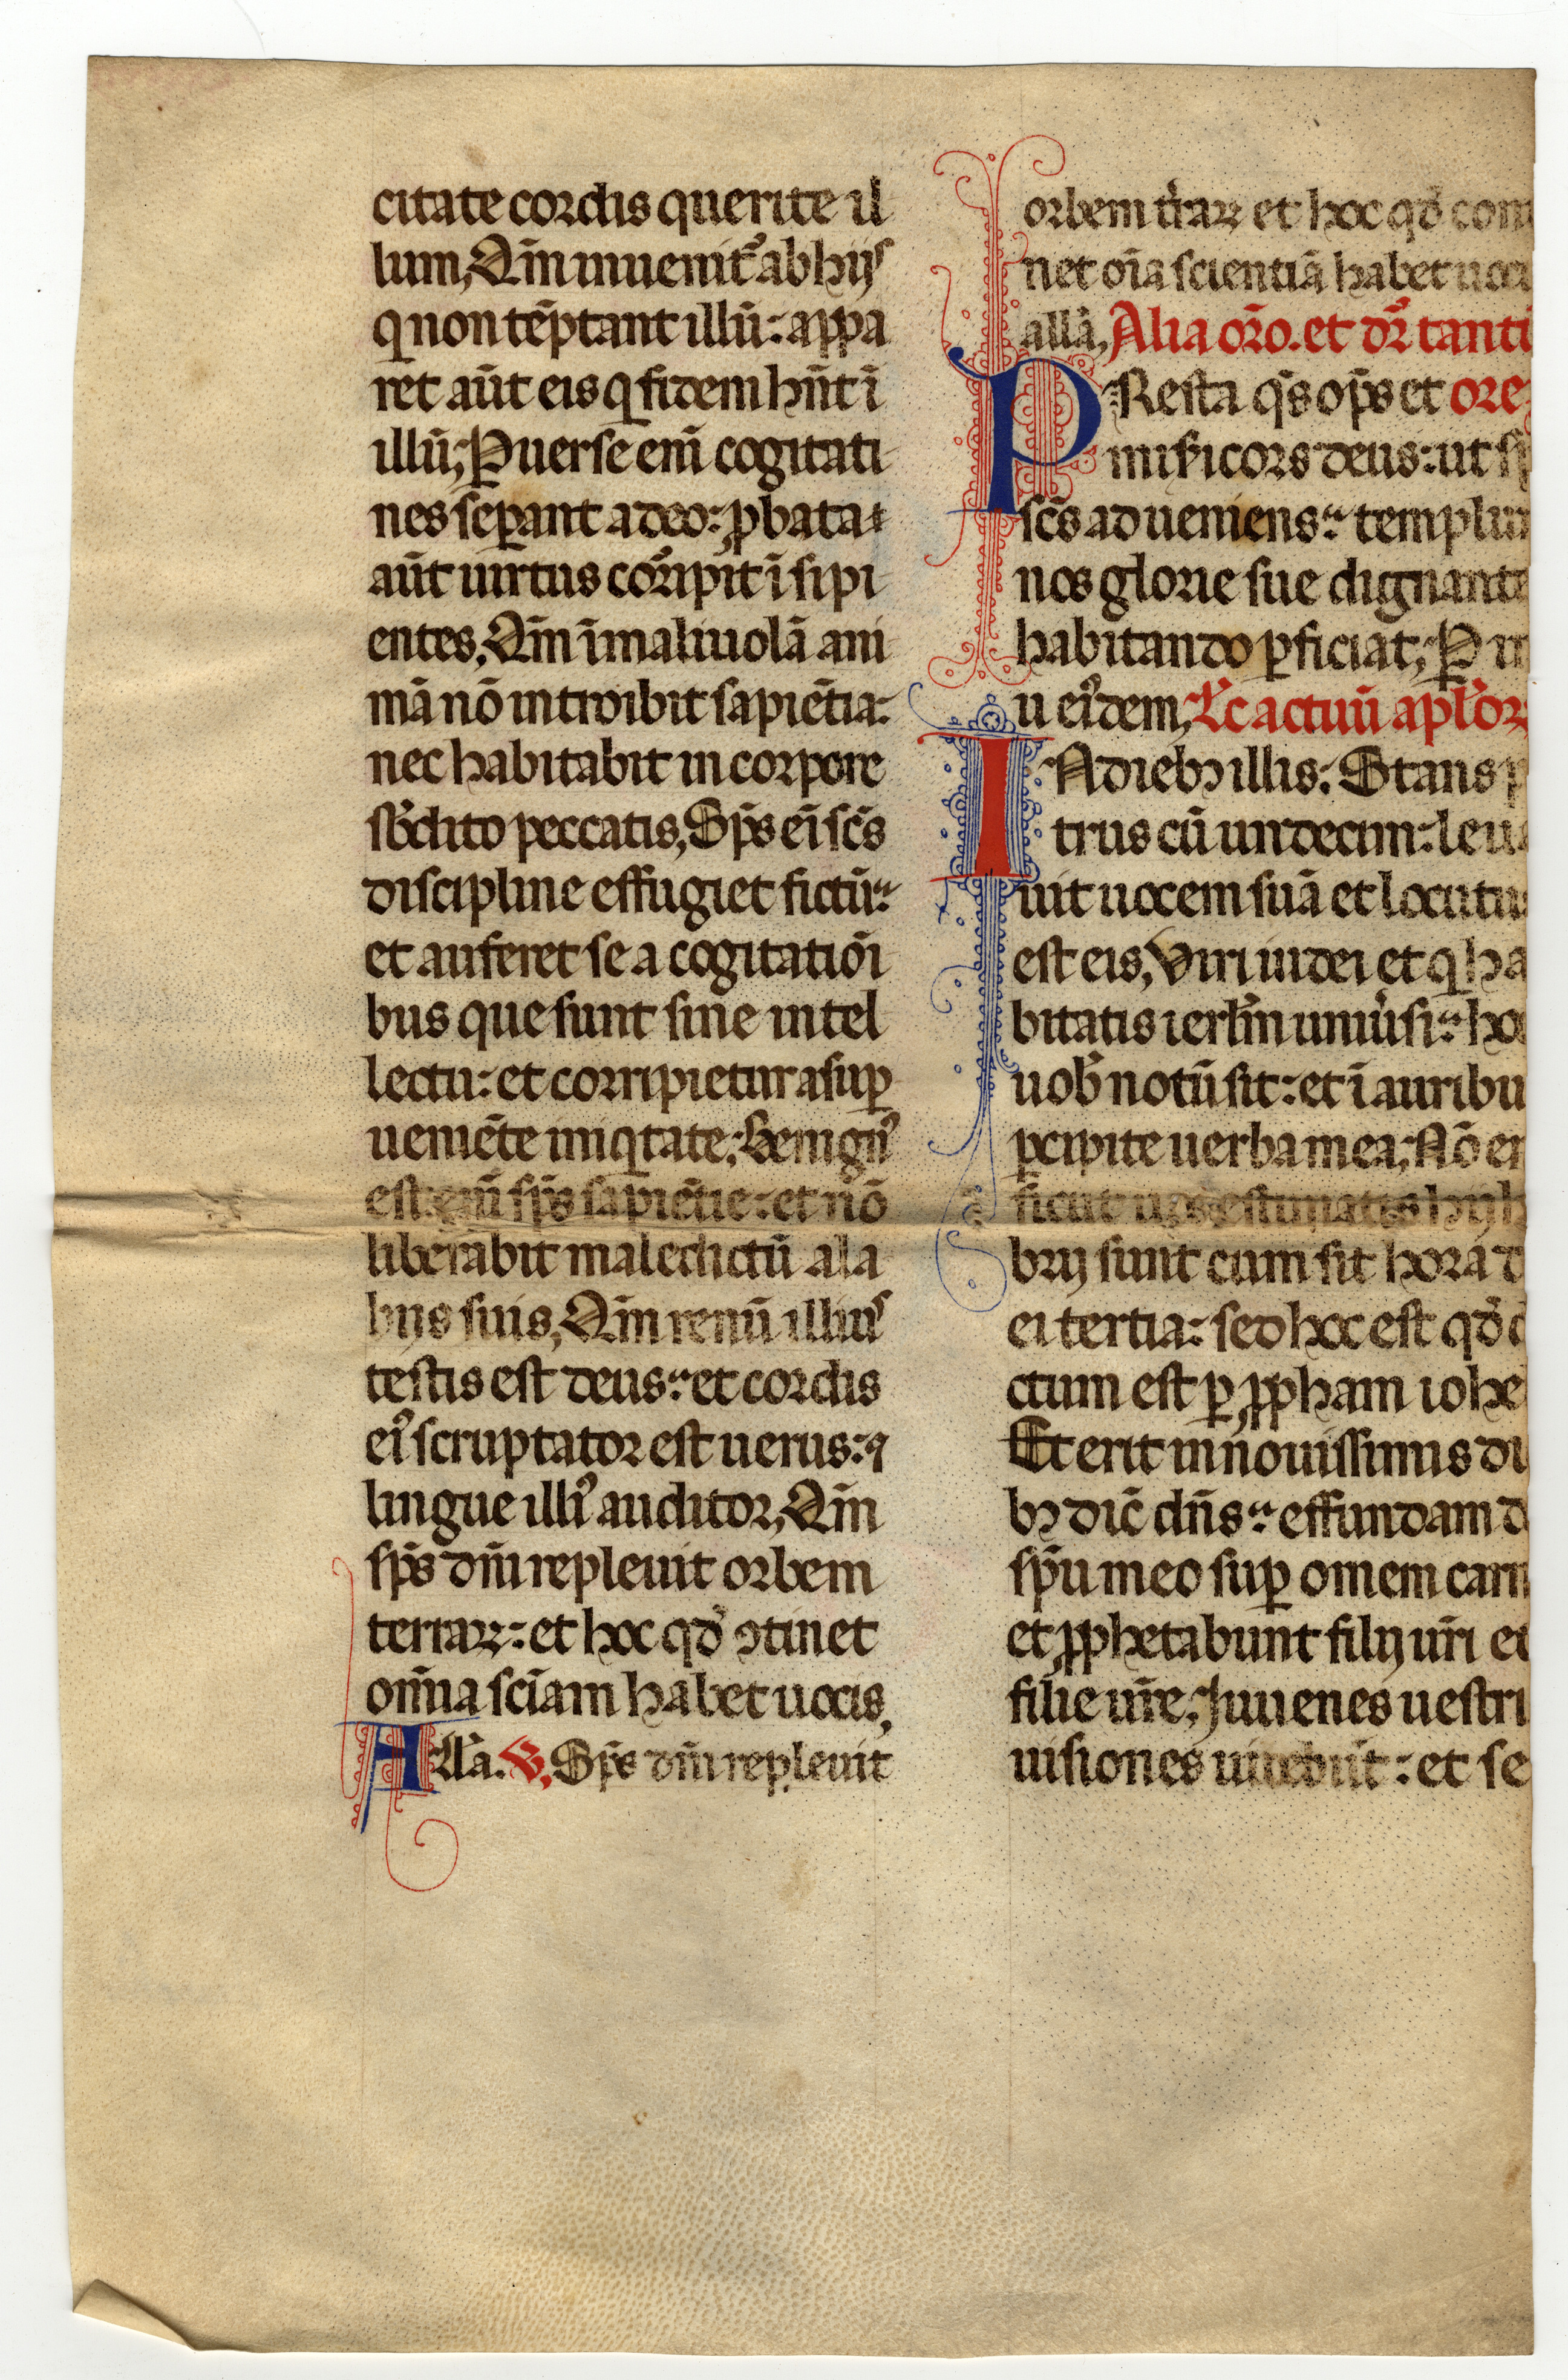 citate cordis querite il
lum, Qm̄ inuenit᷒ ab hijs
q non tēptant illū: appa
ret aūt eis q fidem hn̄t ī
illū; Ꝑuerse enī cogitati
nes seꝑant a deo: ꝓbata
aūt uirtus cor̄ipit ī sipi
entes, Qm̄ ī maliuolā ani
mā nō introibit sapiētia:
nec habitabit in corpore
sb̓dito peccatis, Sp̄s eī sc̄s
discipline effugiet fictū:
et auferet se a cogitatiōi
bus que sunt sine intel
lectu: et corripietur a suꝑ
ueniēte iniqtate; Benign᷒
est enī sp̄s sapiētie: et nō
liberabit maledictū a la
bijs suis, Qm̄ renū illius
testis est deus: et cordis
ei᷒ scruptator est uerus: ⁊
lingue illi᷒ auditor, Qm̄
sp̄s dn̄i repleuit orbem
terraꝝ: et hoc qd̓ ꝯtinet
om̄ia sciam̄ habet uocis,
All̓a. ℣. Sp̄s dn̄i repleuit
orbem t̓raꝝ et hoc qd̓ con
net oīa scientiā habet uoci
allā, Alia or̄o. et dr̄ tanti
PResta qs̄ op̄s et ore
mis̓icors deus: ut sp
sc̄s adueniens: templum
nos glorie sue dignante
habitando ꝑficiat; Ꝑ
u ei᷒dem, Lc̄ actuū apl̓oꝝ
IN dieb; illis: Stans p
trus cū undecim: leua
uit uocem suā et locutus
est eis, Viri iudei et q ha
bitatis ierl̓m uniu̓si: hoc
uob̓ notū sit: et ī auribu
ꝑcipite uerba mea; Nō en
sicut uos estimatis hij
brij sunt cum sit hora d
ei tertia: sed hoc est qd̓ d
ctum est ꝑ ꝓpham iohe
Et erit in nouissimis di
b; dic̄ dn̄s: effundam d
sp̄u meo suꝑ omem carn
et ꝓphetabunt filij ur̄i et
filie ur̄e, Juuenes uestri
uisiones uidebūt: et se